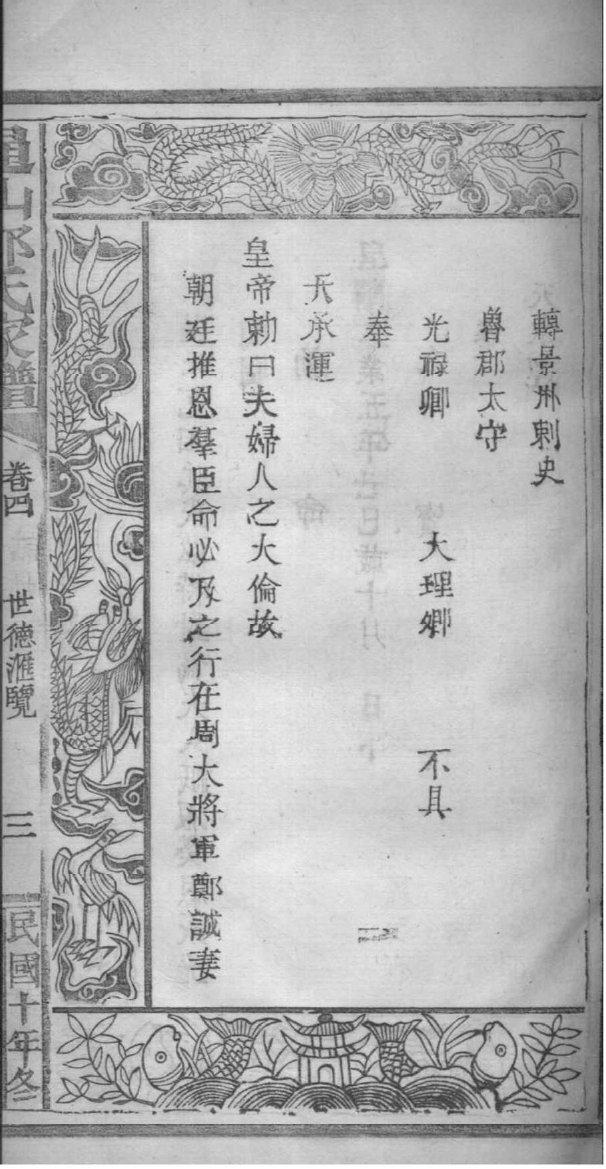 轉景州刺史
魯郡太守
光祿卿　大理卿　不具
奉
天承運
皇帝勅曰夫婦人之大倫故
朝廷推恩羣臣命必及之行在周大將軍鄭誠妻
鄭氏家譜
卷四
世德滙覽
三
民國十年冬